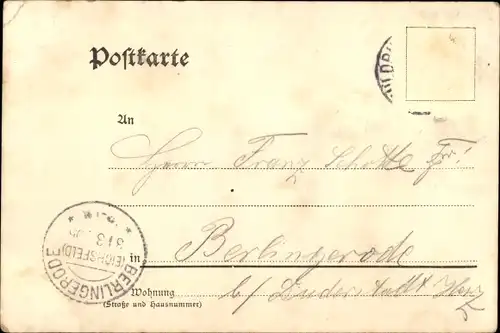 Postkarte
An
Herrn Franz Schotte
in Berlingerode
Wohnung
(Straße und Hausnummer)
b/ Duderstadt
BERLINGERODE
(EICHSFELD)
31 3